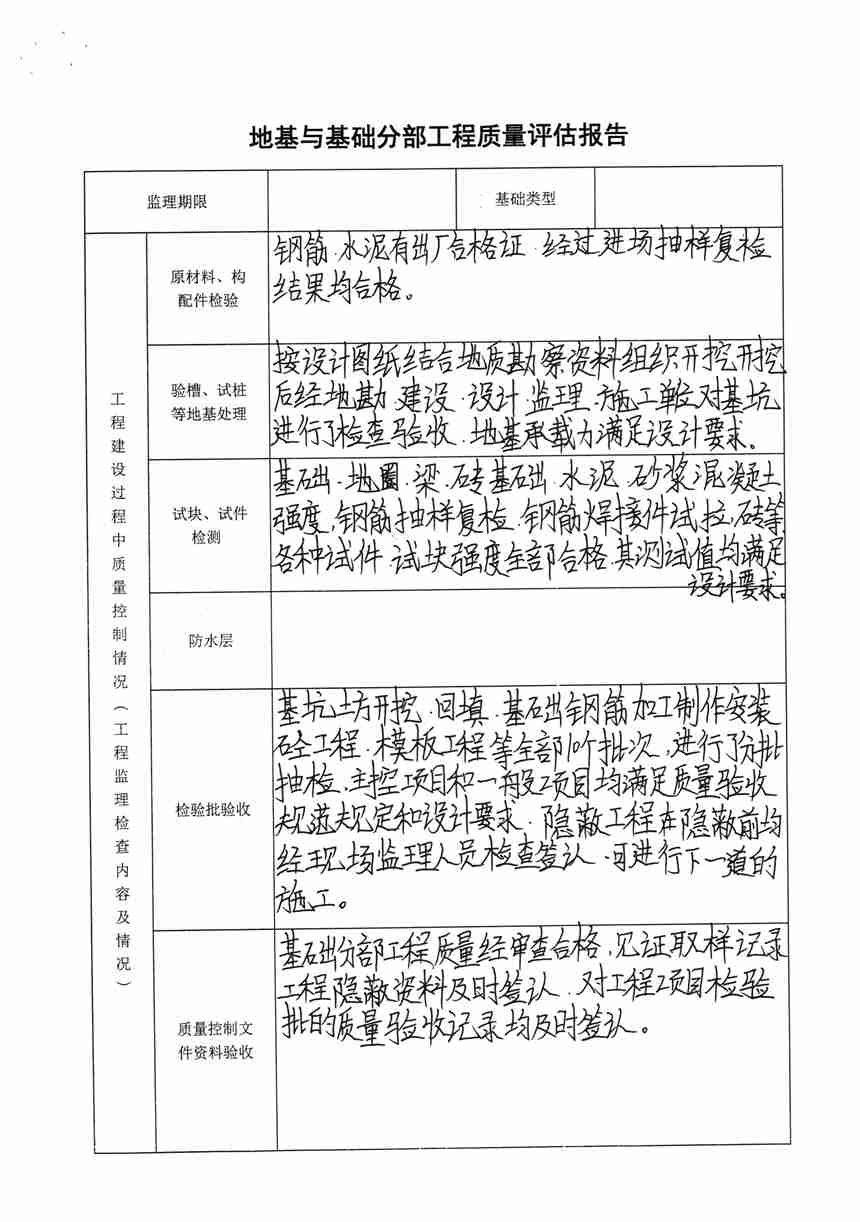 地基与基础分部工程质量评估报告
监理期限
基础类型
工程建设过程中质量控制情况（工程监理检查内容及情况）
原材料、构
配件检验
钢筋.水泥有出厂合格证.经过进场抽样复检
结果均合格。
验槽、试桩
等地基处理
按设计图纸结合地质勘察资料组织开挖,开挖
后经地勘.建设.设计.监理.施工单位对基坑
进行了检查验收.地基承载力满足设计要求。
试块、试件
检测
基础.地圈.梁.砖基础.水泥.砂浆混凝土
强度,钢筋抽样复检.钢筋焊接件试拉,砖等
各种试件.试块强度全部合格.其测试值均满足
设计要求。
防水层
检验批验收
基坑土方开挖.回填.基础钢筋加工制作安装
砼工程.模板工程等全部10个批次,进行了分批
抽检.主控项目和一般项目均满足质量验收
规范规定和设计要求.隐蔽工程在隐蔽前均
经现场监理人员检查签认.可进行下一道的
施工。
质量控制文
件资料验收
基础分部工程质量经审查合格,见证取样记录
工程隐蔽资料及时签认.对工程项目检验
批的质量验收记录均及时签认。